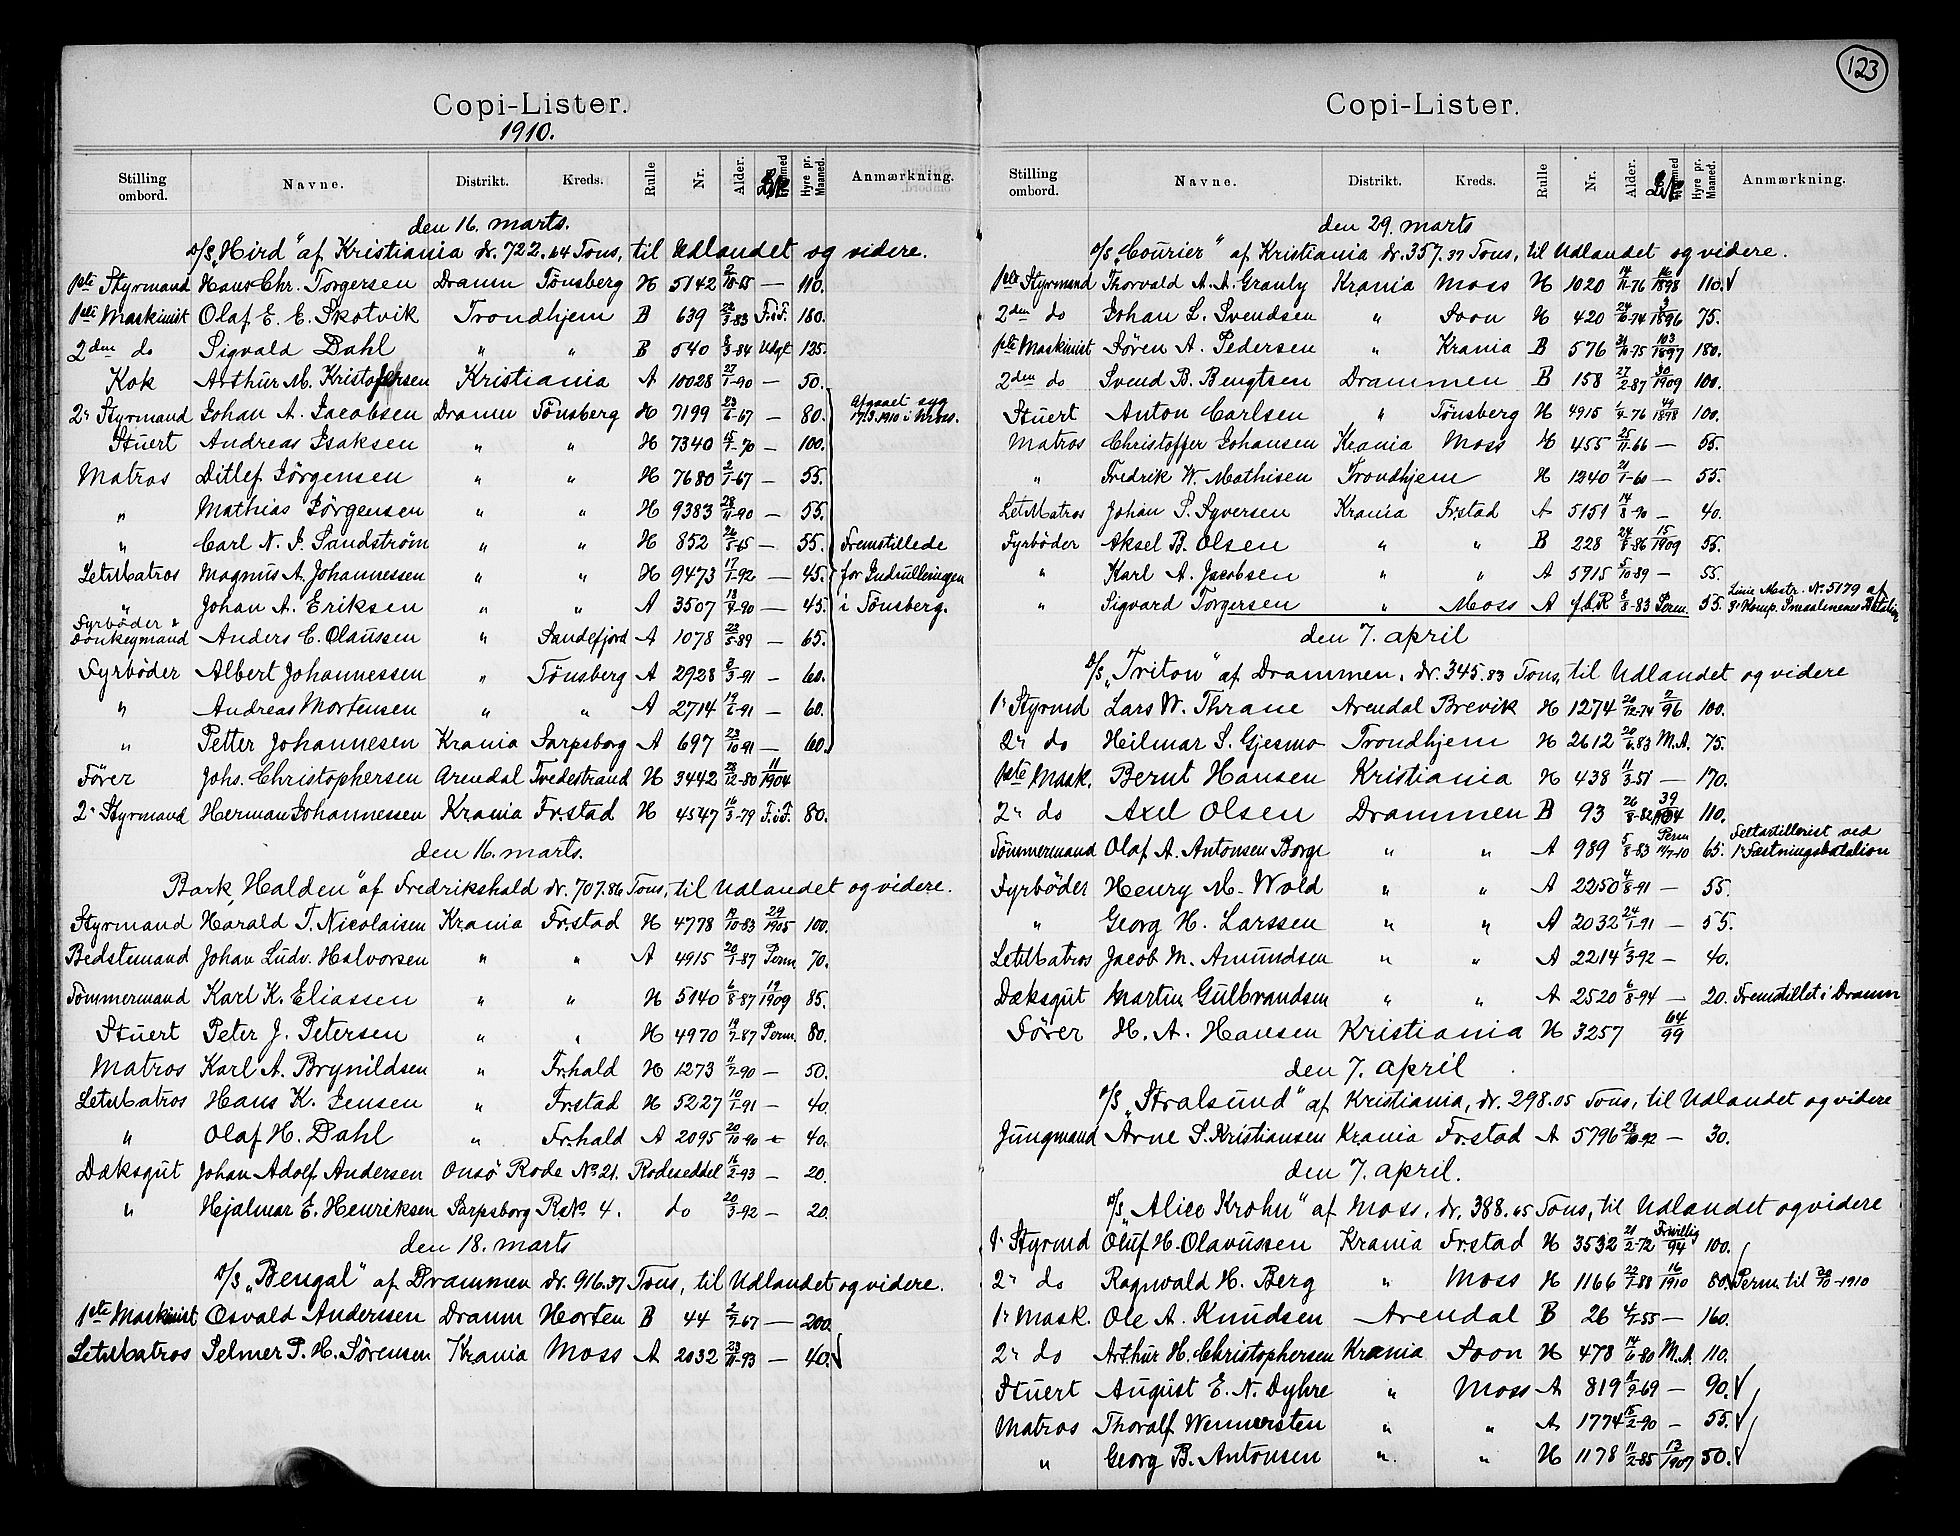 Copi-Lister.
1910.
Stilling ombord. Navne. Distrikt. Kreds. Rulle Nr. Alder. Hyre pr. Maaned. Anmærkning.
den 16. marts.
D/S „Hird" af Kristiania dr. 722.64 Tons, til Udlandet og videre.
1ste Styrmand Hans Chr. Torgersen Dramn Tönsberg H 5142 2/10-65 — 110.
1ste Maskinist Olaf E. E. Skotvik Trondhjem B 639 22/3-83 F.i.F. 180.
2den do Sigvald Dahl " " B 540 8/3-84 Udgt 125.
Kok Arthur M. Kristoffersen Kristiania A 10028 27/1-90 — 50.
2n Styrmand Johan A. Jacobsen Dramn Tönsberg H 7199 23/6-67 — 80. Afgaaet syg 17/3.1910 i Moss.
Stuert Andreas Isaksen " " H 7340 15/1-70 — 100.
Matros Ditlef Jörgensen " " H 7680 2/1-67 — 55.
" Mathias Jörgensen " " H 9383 28/11-90 — 55.
" Carl N. J. Sandström " " H 852 26/5-65 — 55. Fremstillede
LetMatros Magnus A. Johannessen " " H 9473 17/1-92 — 45. for Indrulleringen
" Johan A. Eriksen " " A 3507 13/4-90 — 45. i Tönsberg.
Fyrböder & Donkeymand Anders C. Olaussen " Sandefjord A 1078 22/5-89 — 65.
Fyrböder Albert Johannessen " Tönsberg A 2928 3/3-91 — 60.
" Andreas Mortensen " " A 2714 19/6-91 — 60.
" Petter Johannesen Krania Sarpsborg A 697 23/10-91 — 60.
Förer Johs. Christophersen Arendal Tvedestrand H 3442 28/12-80 11/1904
2n Styrmand Herman Johannessen Krania Fr.stad H 4547 16/3-79 F.i.F. 80.
den 16. marts.
Bark „Halden" af Fredrikshald dr. 707.86 Tons, til Udlandet og videre.
Styrmand Harald T. Nicolaisen Krania Fr.stad H 4778 19/10-83 29/1905 100.
Bedstemand Johan Ludv. Halvorsen " " A 4915 20/1-87 Perm 70.
Tömmermand Karl K. Eliassen " " H 5140 6/8-87 19/1909 85.
Stuert Peter J. Petersen " " H 4970 19/7-87 Perm. 80.
Matros Karl A. Brynildsen " Fr.hald H 1273 11/7-90 — 50.
LetMatros Hans K. Jensen " Fr.stad H 5227 10/1-91 — 40.
" Olaf H. Dahl " Fr.hald A 2095 20/10-90 — 40.
Dæksgut Johan Adolf Andersen Onsö Rode No 21. Rodeseddel 11/2-93 — 20.
" Hjalmar E. Henriksen Sarpsborg R. No 4. do 20/3-92 — 20.
den 18. marts
D/S „Bengal" af Drammen dr. 916.37 Tons, til Udlandet og videre.
1ste Maskinist Osvald Anderssen Dramn Horten B 44 2/7-67 — 200.
LetMatros Selmer P. H. Sörensen Krania Moss A 2032 23/11-93 — 40.
123
Copi-Lister.
Stilling ombord. Navne. Distrikt. Kreds. Rulle Nr. Alder. Hyre pr. Maaned. Anmærkning.
den 29. marts
D/S „Courier" af Kristiania dr. 357.37 Tons, til Udlandet og videre.
1ste Styrmand Thorvald A. A. Granly Krania Moss H 1020 14/11-76 16/1898 110.
2den do Johan L. Svendsen " Soon H 420 24/6-74 3/1896 75.
1ste Maskinist Sören A. Pedersen " Krania B 576 31/10-75 103/1897 180.
2den do Svend B. Bengtsen Drammen B 158 27/2-87 30/1909 100.
Stuert Anton Carlsen " Tönsberg H 4915 1/9-76 49/1898 100.
Matros Christoffer Johansen Krania Moss H 455 25/11-66 — 55.
" Fredrik W. Mathisen Trondhjem H 1240 21/1-60 — 55.
LetMatros Johan S. Syversen Krania Fr.stad A 5151 14/8-90 — 40.
Fyrböder Aksel B. Olsen " " B 228 24/8-86 15/1909 55.
" Karl A. Jacobsen " " A 5915 5/10-89 — 55.
" Sigvard Torgersen " Moss A f.b.R 8/8-83 Perm. 55. Linie Mstr. No. 5179 af 3. Komp. Smaalenenes Bataljon
den 7. april
D/S „Triton" af Drammen, dr. 345.83 Tons, til Udlandet og videre
1n Styrmd Lars W. Thrane Arendal Brevik H 1274 20/12-74 2/96 100.
2n do Heilmar S. Gjesmo Trondhjem H 2612 20/6-83 M.A. 75.
1ste Mask. Bernt Hansen Kristiania H 438 11/3-51 — 170.
2n do Axel Olsen Drammen B 93 26/8-82 39/1904 110.
Tömmermand Olaf A. Antonsen Borge " " A 989 5/8-83 Perm 11/7-10 65. Feltartillerist ved 1ste Fæstningsbatalion
Fyrböder Henry M. Wold " " A 2250 4/8-91 — 55.
" Georg H. Larssen " " A 2032 24/1-91 — 55.
LetMatros Jacob M. Amundsen " " A 2214 1/3-92 — 40.
Dæksgut Martin Gulbrandsen " " A 2520 6/8-94 — 20. Fremstillet i Dramn
Förer H. A. Hansen Kristiania H 3257 64/99
den 7. april
D/S „Stralsund" af Kristiania, dr. 298.05 Tons, til Udlandet og videre
Jungmand Arne S. Kristiansen Krania Fr.stad A 5796 28/10-92 — 30.
den 7. april.
D/S „Alice Krohn" af Moss, dr. 388.65 Tons, til Udlandet og videre
1n Styrmd Oluf H. Olavussen Krania Fr.stad H 3532 21/2-72 Frivillig 94 100.
2n do Ragnvald H. Berg " Moss H 1166 22/7-88 16/1910 80. Perm. til 20/10-1910
1n Mask. Ole A. Knudsen Arendal B 26 4/7-55 — 160.
2n do Arthur H. Christophersen Krania Soon H 478 14/6-80 M.A. 110.
Stuert August E. N. Dyhre " Moss A 819 11/9-69 — 90.
Matros Thoralf Wennersten " " A 1774 15/2-90 — 55.
" Georg B. Antonsen " " H 1178 11/2-85 13/1907 50.